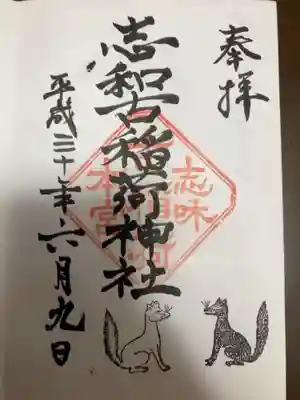 奉拝
志和古稲荷神社
本宮
平成三十年六月九日